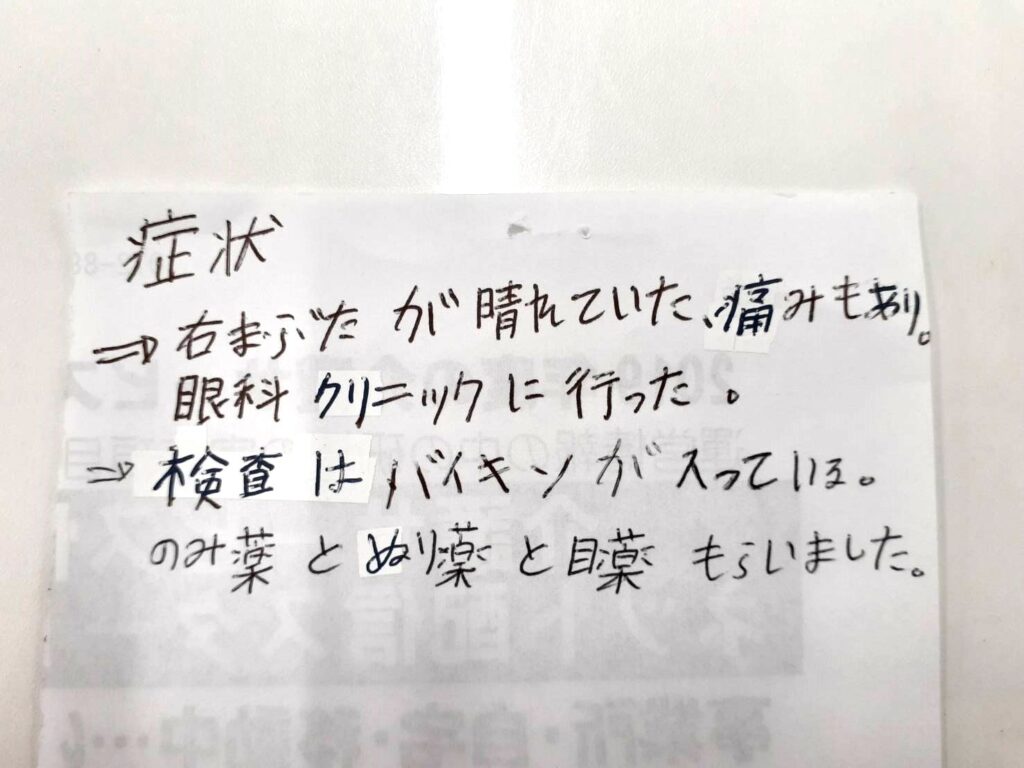 症状
⇒ 右まぶたが晴れていた、痛みもあり。
眼科クリニックに行った。
⇒ 検査はバイキンが入っている。
のみ薬とぬり薬と目薬もらいました。